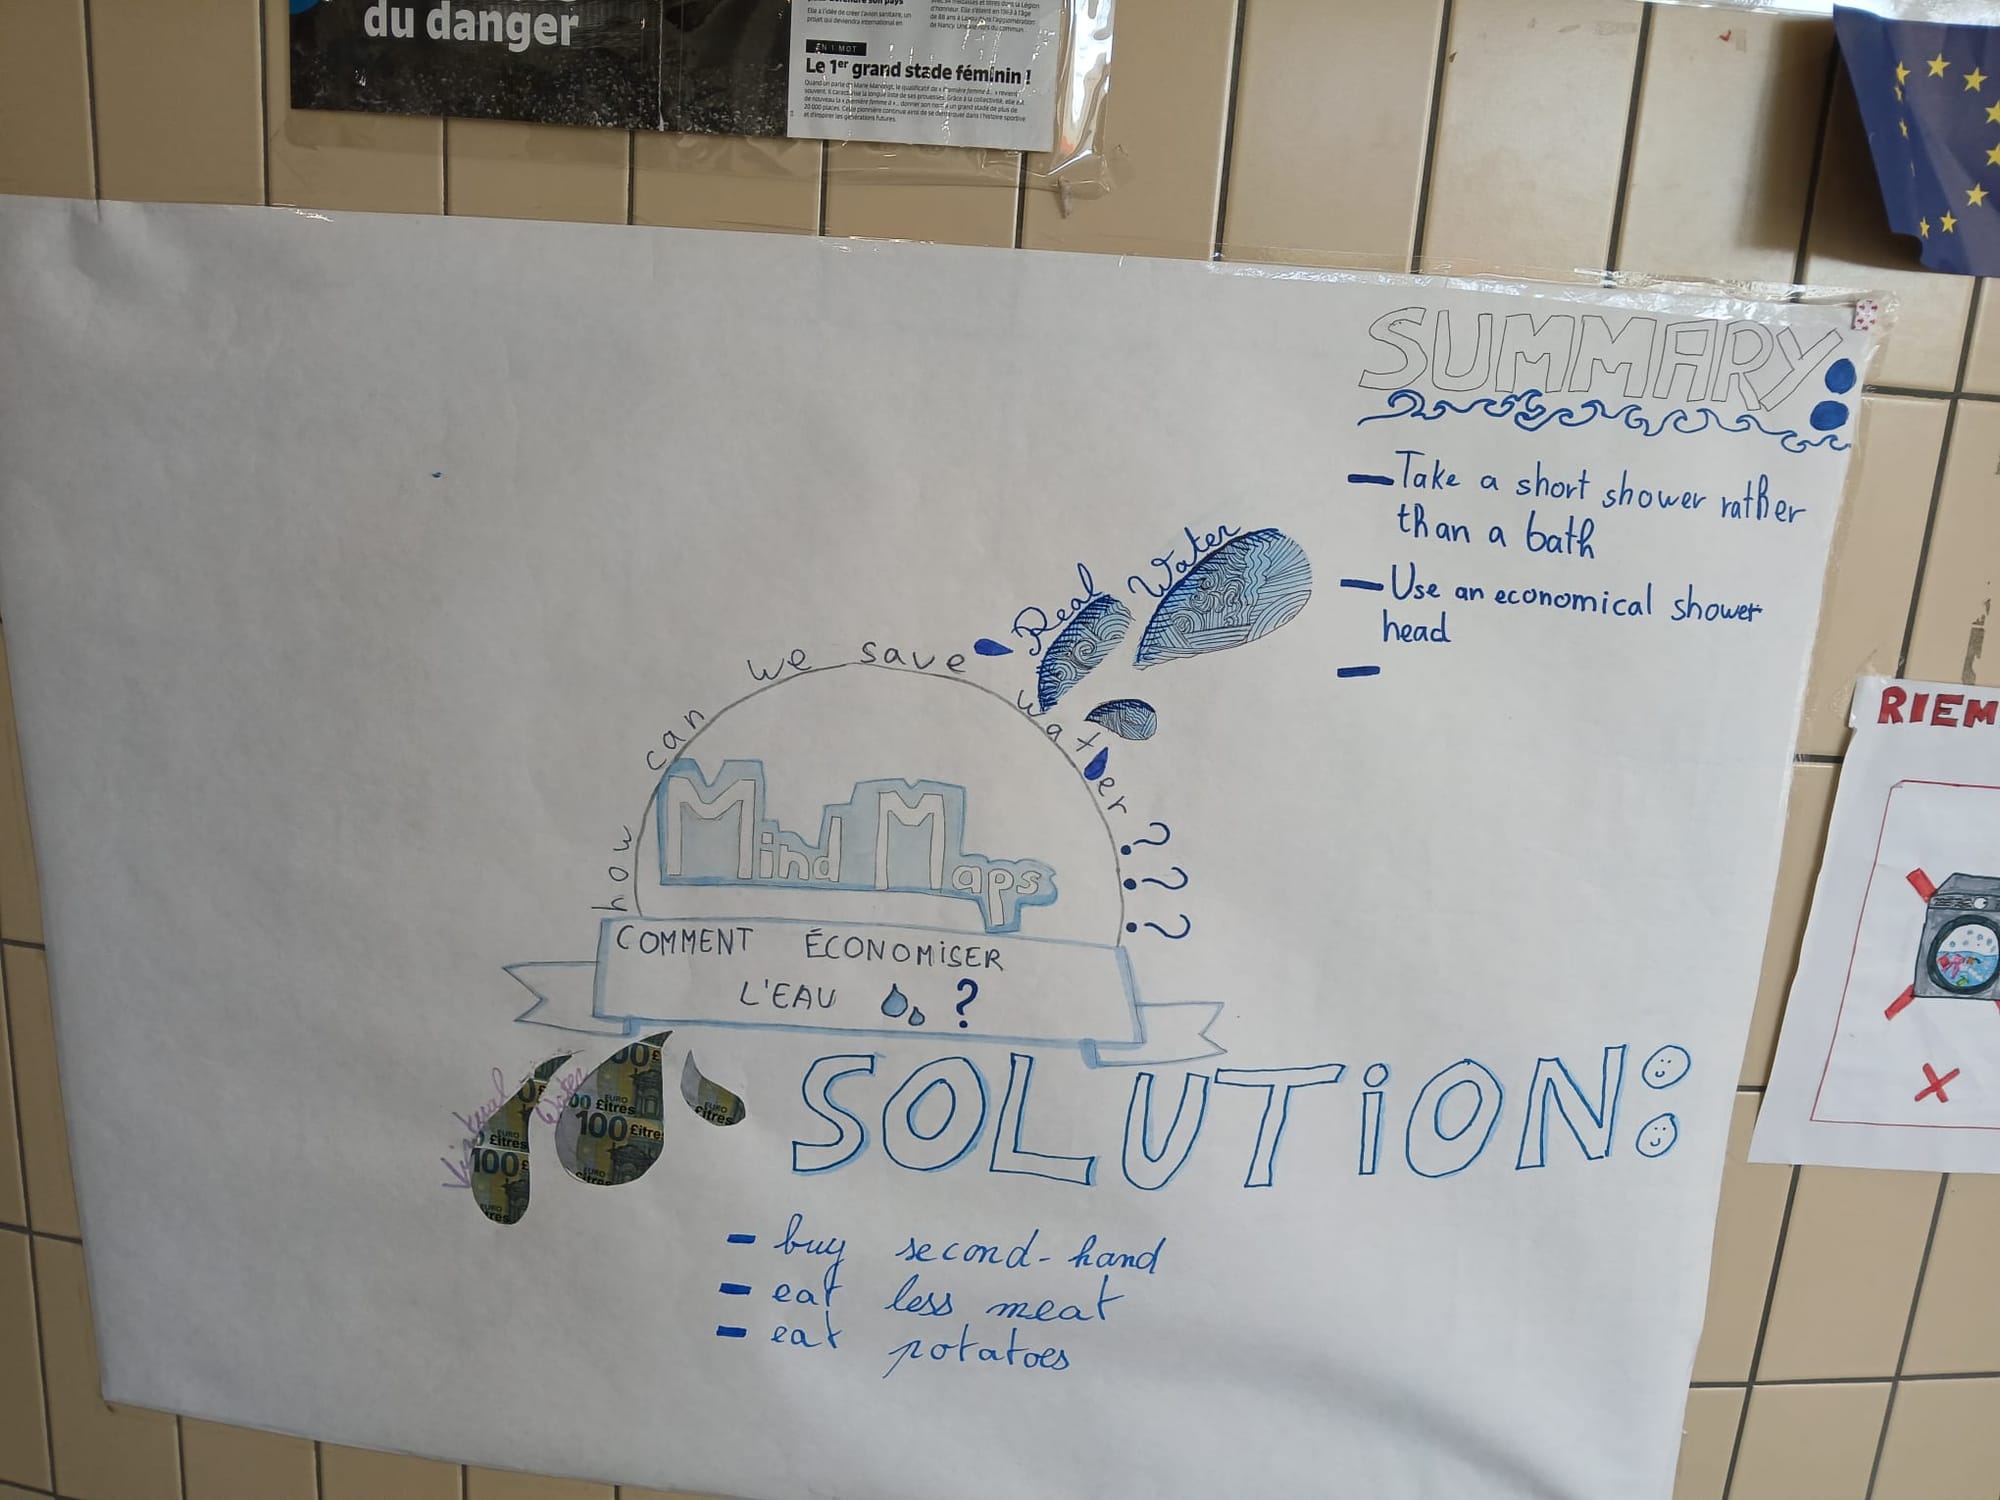 du danger
EN 1 MOT
Le 1er grand stade féminin !
SUMMARY:
Take a short shower rather
than a bath
Use an economical shower
head
Real Water
how can we save water ???
Mind Maps
COMMENT ÉCONOMISER
L'EAU ?
Virtual Water
00 £
EURO
00 £itres
100 £itre
EURO
£itres
EURO
£itres
EURO
£itres
100 £
EURO
SOLUTION:
- buy second-hand
- eat less meat
- eat potatoes
RIEM